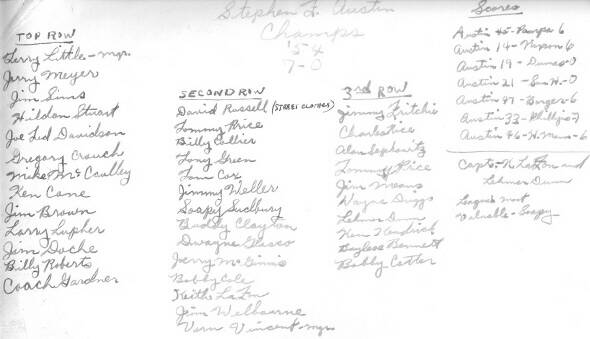 Stephen F. Austin
Champs
'54
7-0
TOP ROW
Larry Little - mgr.
Jerry Meyer
Jim Sims
Hildon Stuart
Joe Ted Davidson
Gregory Crouch
Mike McCaulley
Ken Cone
Jim Brown
Larry Lupher
Jim Doche
Billy Roberts
Coach Gardner
SECOND ROW
David Russell (STREET CLOTHES)
Tommy Price
Billy Collier
Tony Green
Tom Cox
Jimmy Weller
Soapy Sudbury
Buddy Clayton
Dwayne
Jerry McGinnis
Bobby Cole
Keith LaFon
Jim Welbourne
Vern Vincent - mgr.
3rd ROW
Jimmy Fritchie
Charles
Alan
Tommy Price
Jim Means
Wayne Diggs
Lehman Dunn
Ken Kendrick
Bayless Bennett
Bobby Cotter
Scores
Austin 45 - Pampa 6
Austin 14 - Nixon 6
Austin 19 - Dumas 0
Austin 21 - Sam H. - 0
Austin 47 - Borger - 6
Austin 33 - Phillips 7
Austin 46 - H. Mann - 6
Capts. - K. LaFon and
Lehman Dunn
League most
Valuable - Soapy